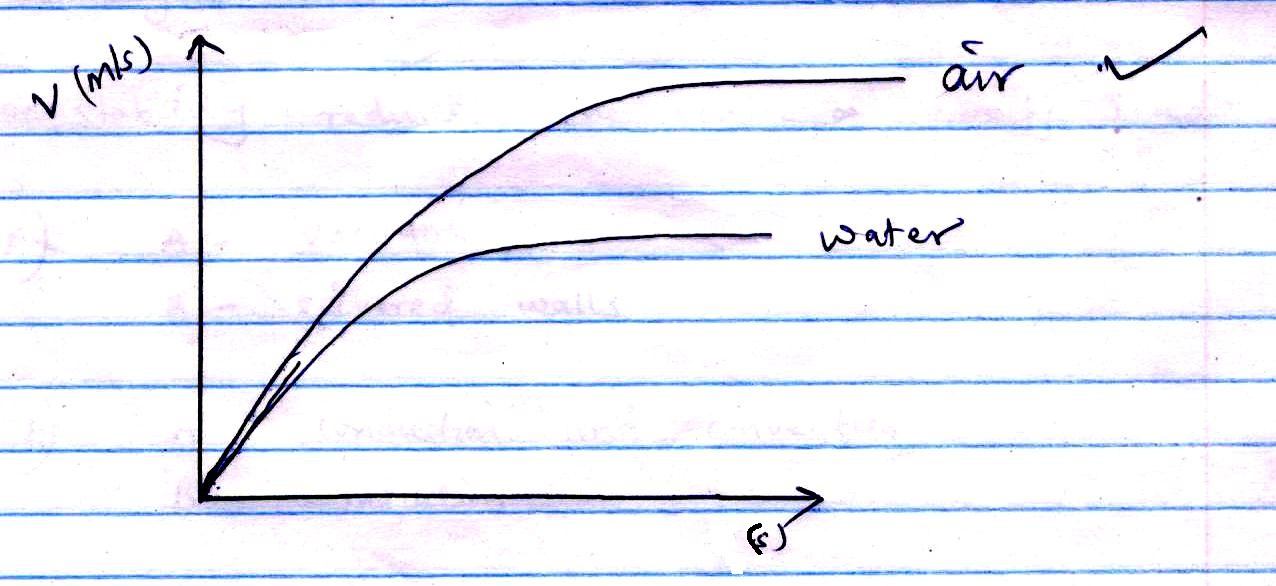 V (m/s)
air
water
(s)